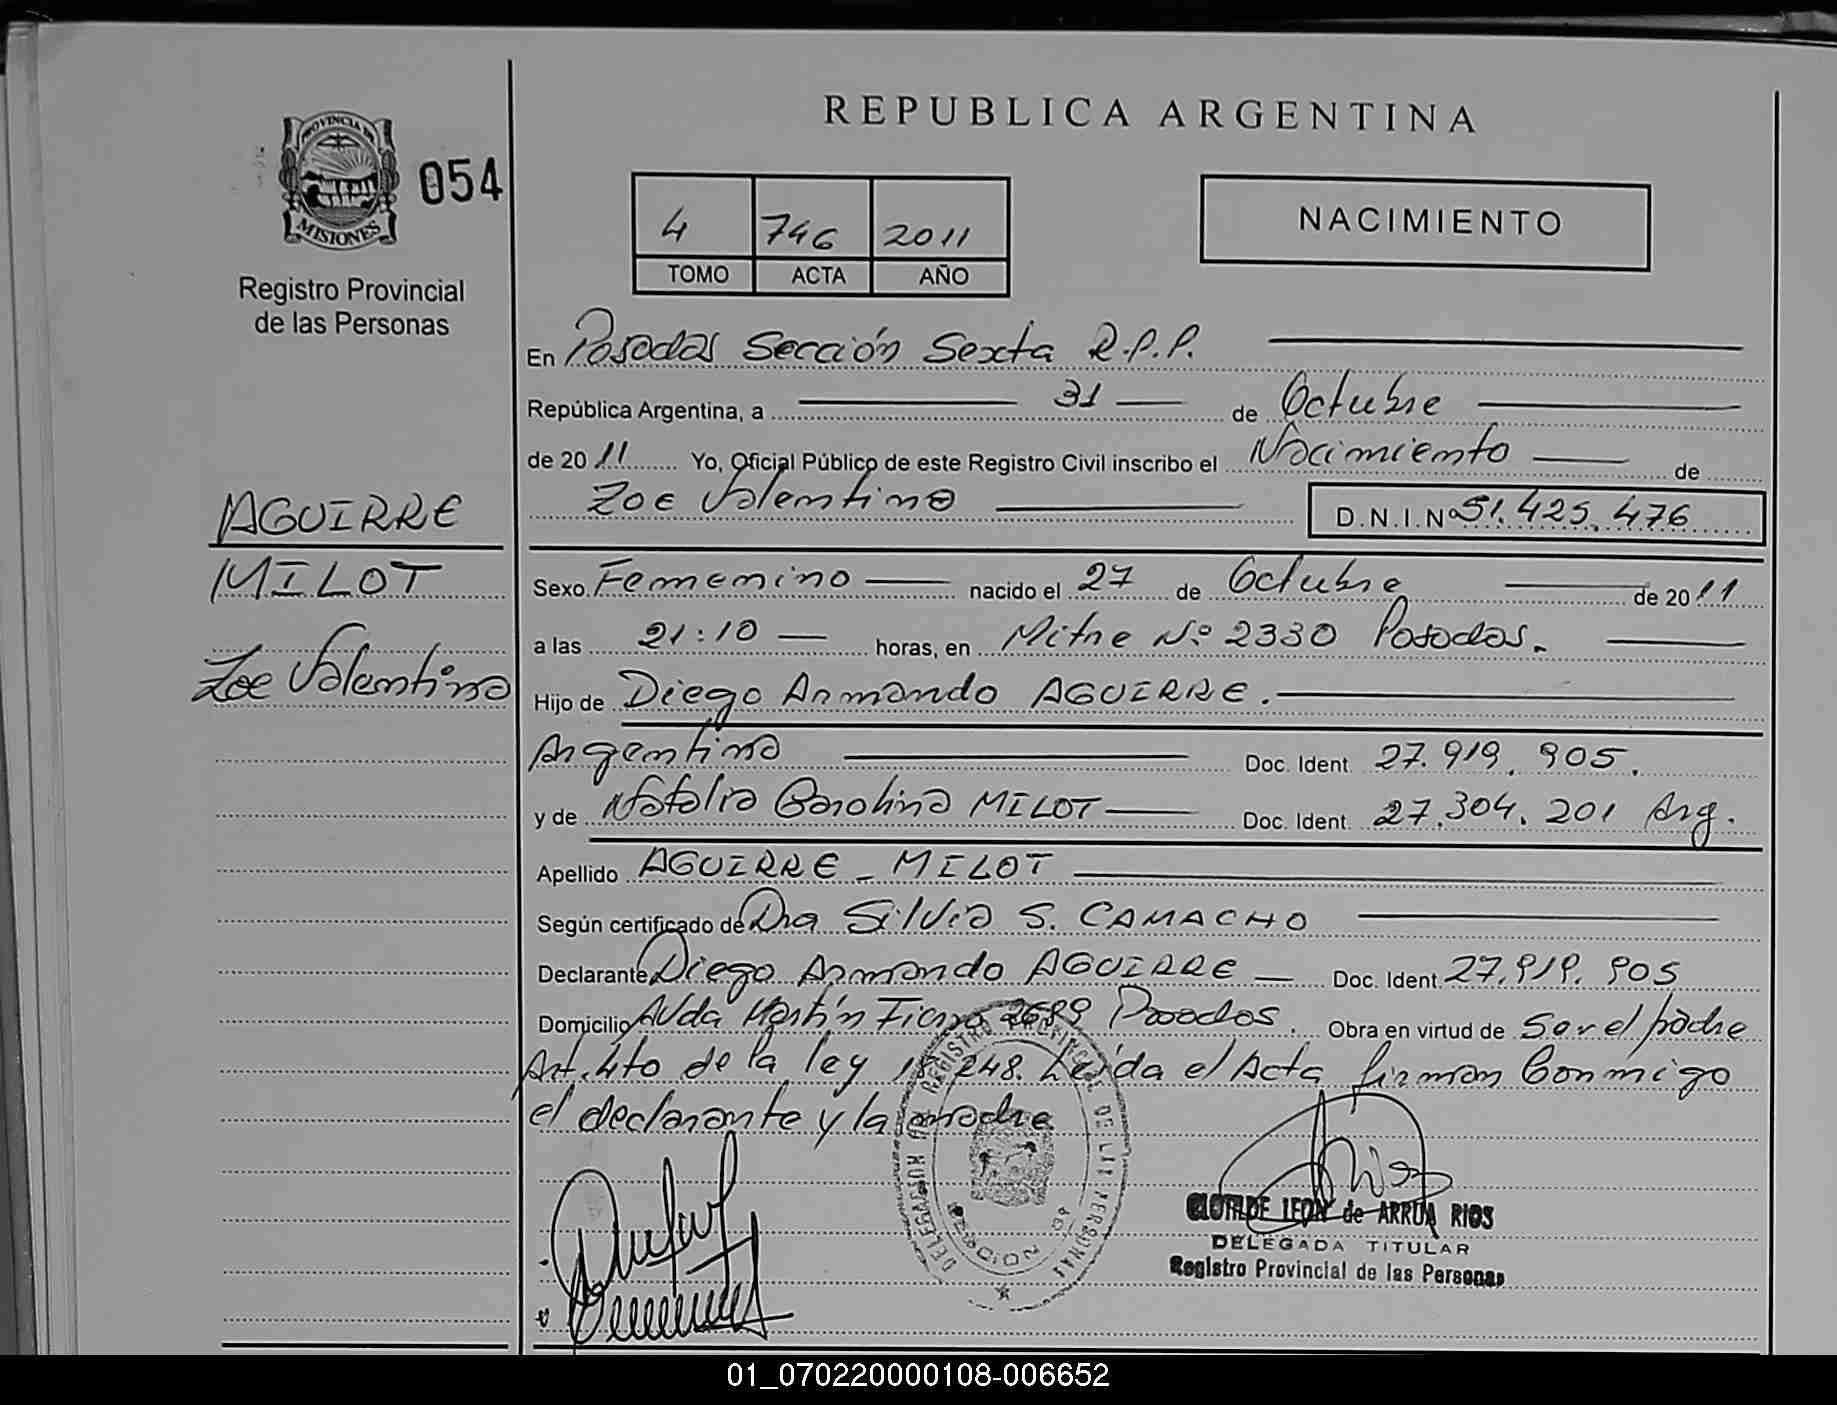 REPUBLICA ARGENTINA
PROVINCIA DE
MISIONES
054
Registro Provincial
de las Personas
4 746 2011
TOMO ACTA AÑO
NACIMIENTO
En Posadas Sección Sexta R.P.P.
República Argentina, a 31 de Octubre
de 2011 Yo, Oficial Público de este Registro Civil inscribo el Nacimiento de
Zoe Valentina D.N.I.Nº 51.425.476
AGUIRRE
MILOT
Zoe Valentina
Sexo Femenino nacido el 27 de Octubre de 2011
a las 21:10 horas, en Mitre Nº 2330 Posadas.
Hijo de Diego Armando AGUIRRE.
Argentina Doc. Ident. 27.919.905.
y de Natalia Carolina MILOT Doc. Ident. 27.304.201 Arg.
Apellido AGUIRRE - MILOT
Según certificado de Dra Silvia S. CAMACHO
Declarante Diego Armando AGUIRRE Doc. Ident. 27.919.905
Domicilio Avda Martín Fierro Posadas. Obra en virtud de Ser el padre
Art. 4to de la ley 248. Leída el Acta firman Conmigo
el declarante y la madre
DELEGACION REGISTRO PROVINCIAL DE LAS PERSONAS
CLOTILDE LEON de ARRUA RIOS
DELEGADA TITULAR
Registro Provincial de las Personas
01_070220000108-006652